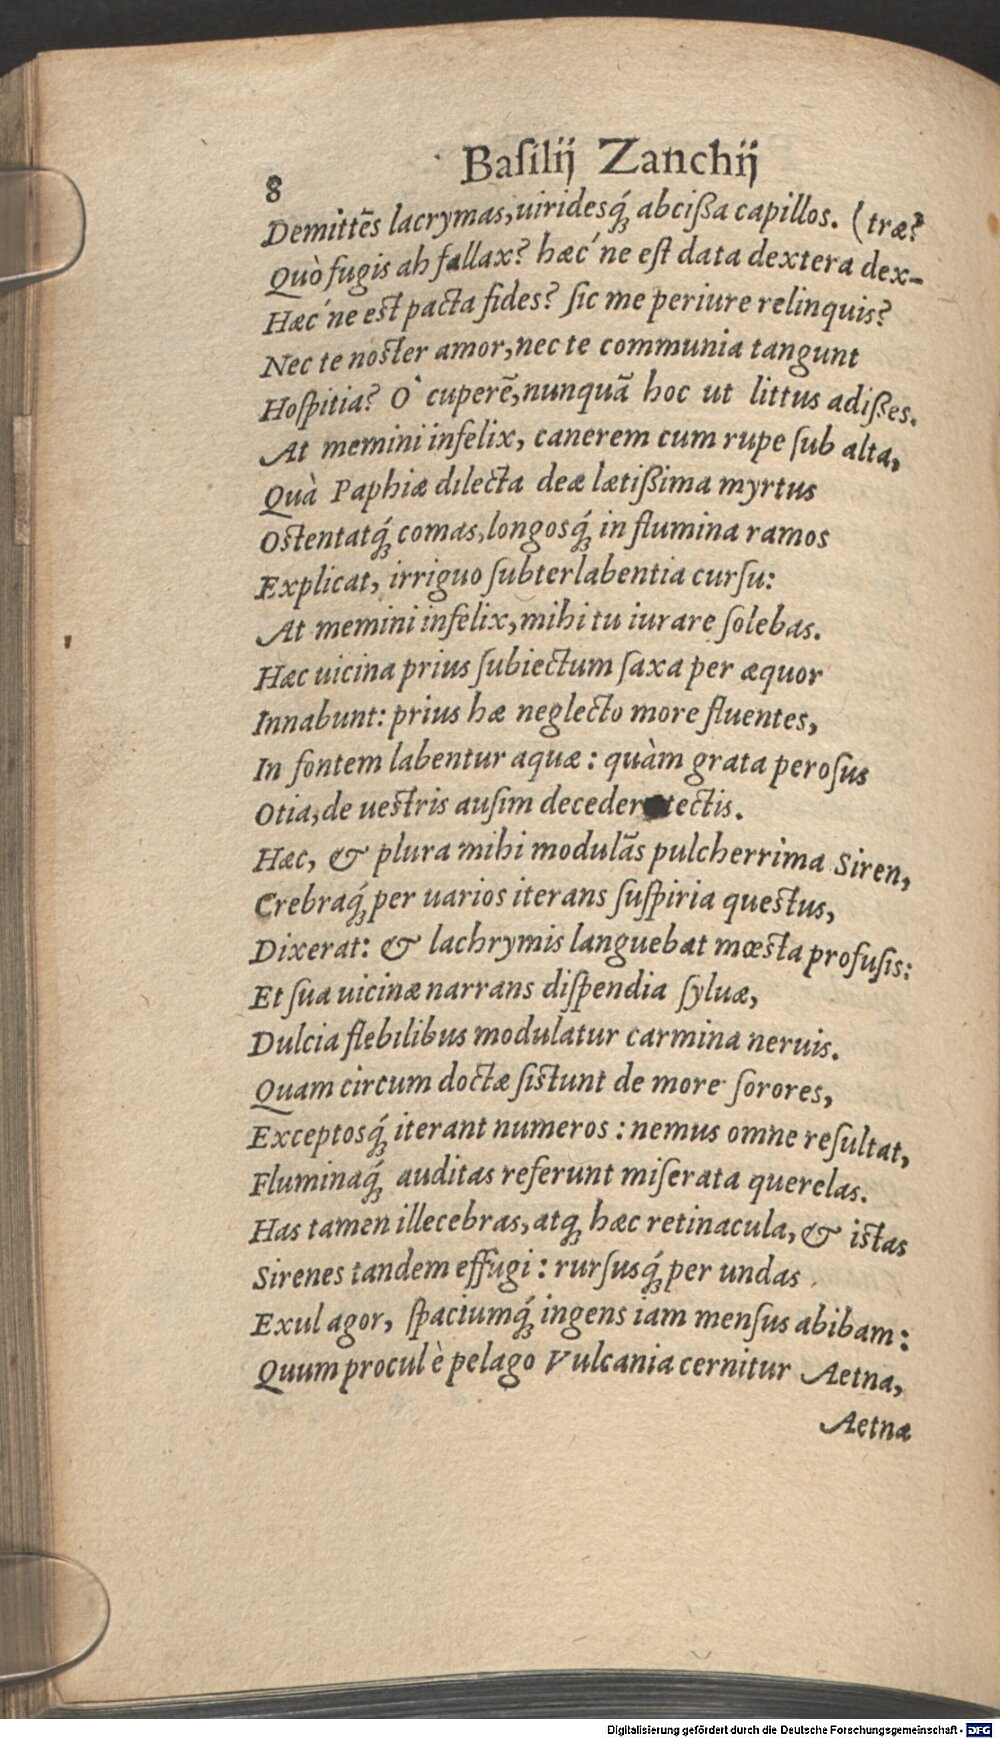 8
Baſilij Zanchij
Demittẽs lacrymas, uiridesq́; abciſſa capillos. (træ?
Quò fugis ah fallax? hæc´ne eſt data dextera dex-
Hæc´ne est pacta fides? ſic me periure relinquis?
Nec te noster amor, nec te communia tangunt
Hoſpitia? Ò cuperẽ, nunquã hoc ut littus adiſſes.
At memini infelix, canerem cum rupe ſub alta,
Quà Paphiæ dilecta deæ lætiſſima myrtus
Ostentatq́; comas, longosq́; in flumina ramos
Explicat, irriguo ſubterlabentia curſu:
At memini infelix, mihi tu iurare ſolebas.
Hæc uicina prius ſubiectum ſaxa per æquor
Innabunt: prius hæ neglecto more fluentes,
In fontem labentur aquæ: quàm grata peroſus
Otia, de uestris auſim deceder tectis.
Hæc, & plura mihi modulãs pulcherrima Siren,
Crebraq́; per uarios iterans ſuſpiria questus,
Dixerat: & lachrymis languebat mœsta profuſis:
Et ſua uicinæ narrans diſpendia ſyluæ,
Dulcia flebilibus modulatur carmina neruis.
Quam circum doctæ ſistunt de more ſorores,
Exceptosq́; iterant numeros: nemus omne reſultat,
Fluminaq́; auditas referunt miſerata querelas.
Has tamen illecebras, atq; hæc retinacula, & istas
Sirenes tandem effugi: rurſusq́; per undas
Exul agor, ſpaciumq́; ingens iam menſus abibam:
Quum procul è pelago Vulcania cernitur Aetna,
Aetnæ
Digitalisierung gefördert durch die Deutsche Forschungsgemeinschaft - DFG